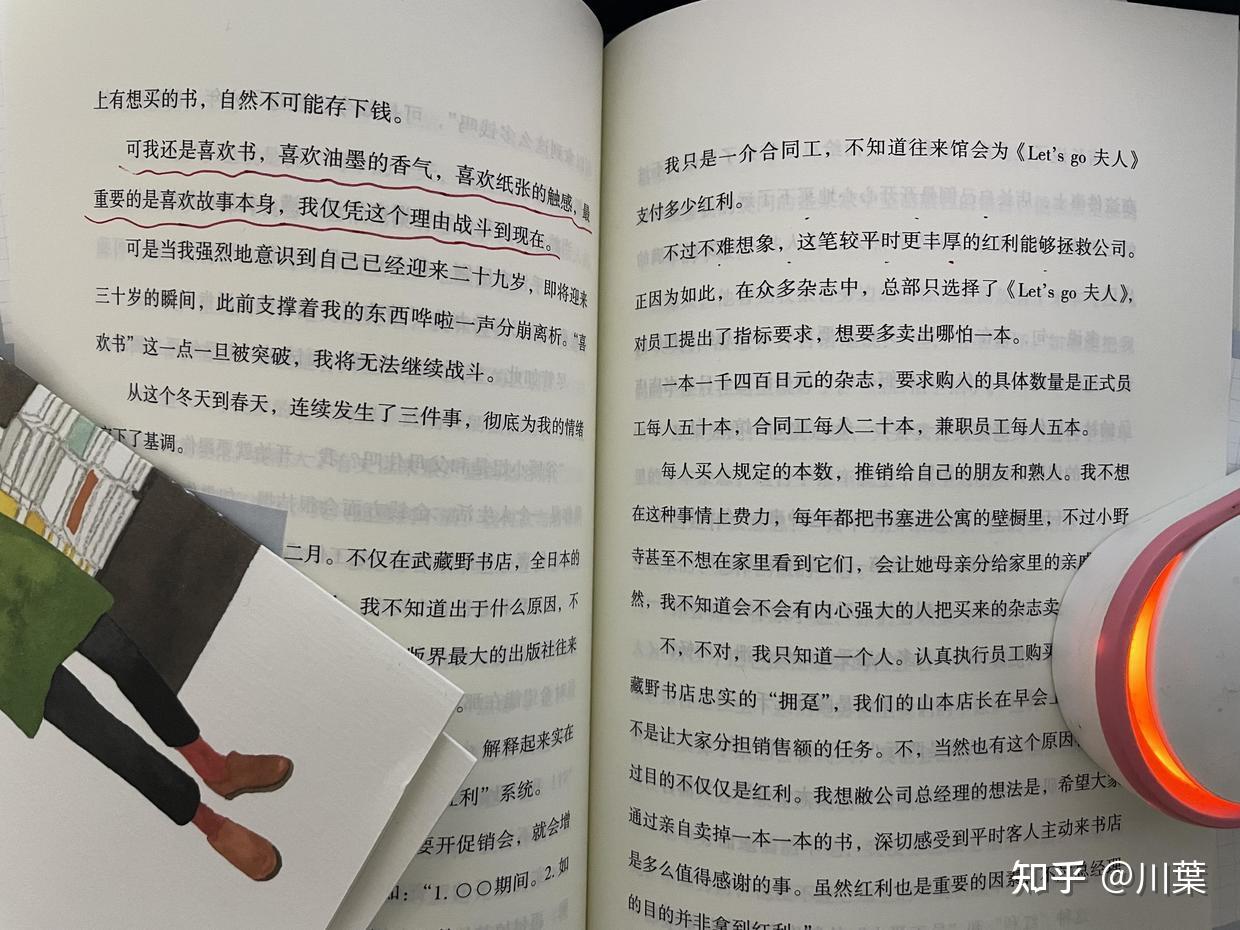 上有想买的书，自然不可能存下钱。
可我还是喜欢书，喜欢油墨的香气，喜欢纸张的触感，最
重要的是喜欢故事本身，我仅凭这个理由战斗到现在。
可是当我强烈地意识到自己已经迎来二十九岁，即将迎来
三十岁的瞬间，此前支撑着我的东西哗啦一声分崩离析。“喜
欢书”这一点一旦被突破，我将无法继续战斗。
从这个冬天到春天，连续发生了三件事，彻底为我的情绪
下了基调。
二月。不仅在武藏野书店，全日本的
我不知道出于什么原因，不
版界最大的出版社往来
。
解释起来实在
红利”系统。
要开促销会，就会增
如：“1. 〇〇期间。2. 如
我只是一介合同工，不知道往来馆会为《Let's go 夫人》
支付多少红利。
不过不难想象，这笔较平时更丰厚的红利能够拯救公司。
正因为如此，在众多杂志中，总部只选择了《Let's go 夫人》，
对员工提出了指标要求，想要多卖出哪怕一本。
一本一千四百日元的杂志，要求购入的具体数量是正式员
工每人五十本，合同工每人二十本，兼职员工每人五本。
每人买入规定的本数，推销给自己的朋友和熟人。我不想
在这种事情上费力，每年都把书塞进公寓的壁橱里，不过小野
寺甚至不想在家里看到它们，会让她母亲分给家里的亲戚
然，我不知道会不会有内心强大的人把买来的杂志卖
不，不对，我只知道一个人。认真执行员工购买
藏野书店忠实的“拥趸”，我们的山本店长在早会上
不是让大家分担销售额的任务。不，当然也有这个原因
过目的不仅仅是红利。我想敝公司总经理的想法是，希望大家
通过亲自卖掉一本一本的书，深切感受到平时客人主动来书店
是多么值得感谢的事。虽然红利也是重要的因素，不 总经理
的目的并非拿到红利。”
知乎 @川葉